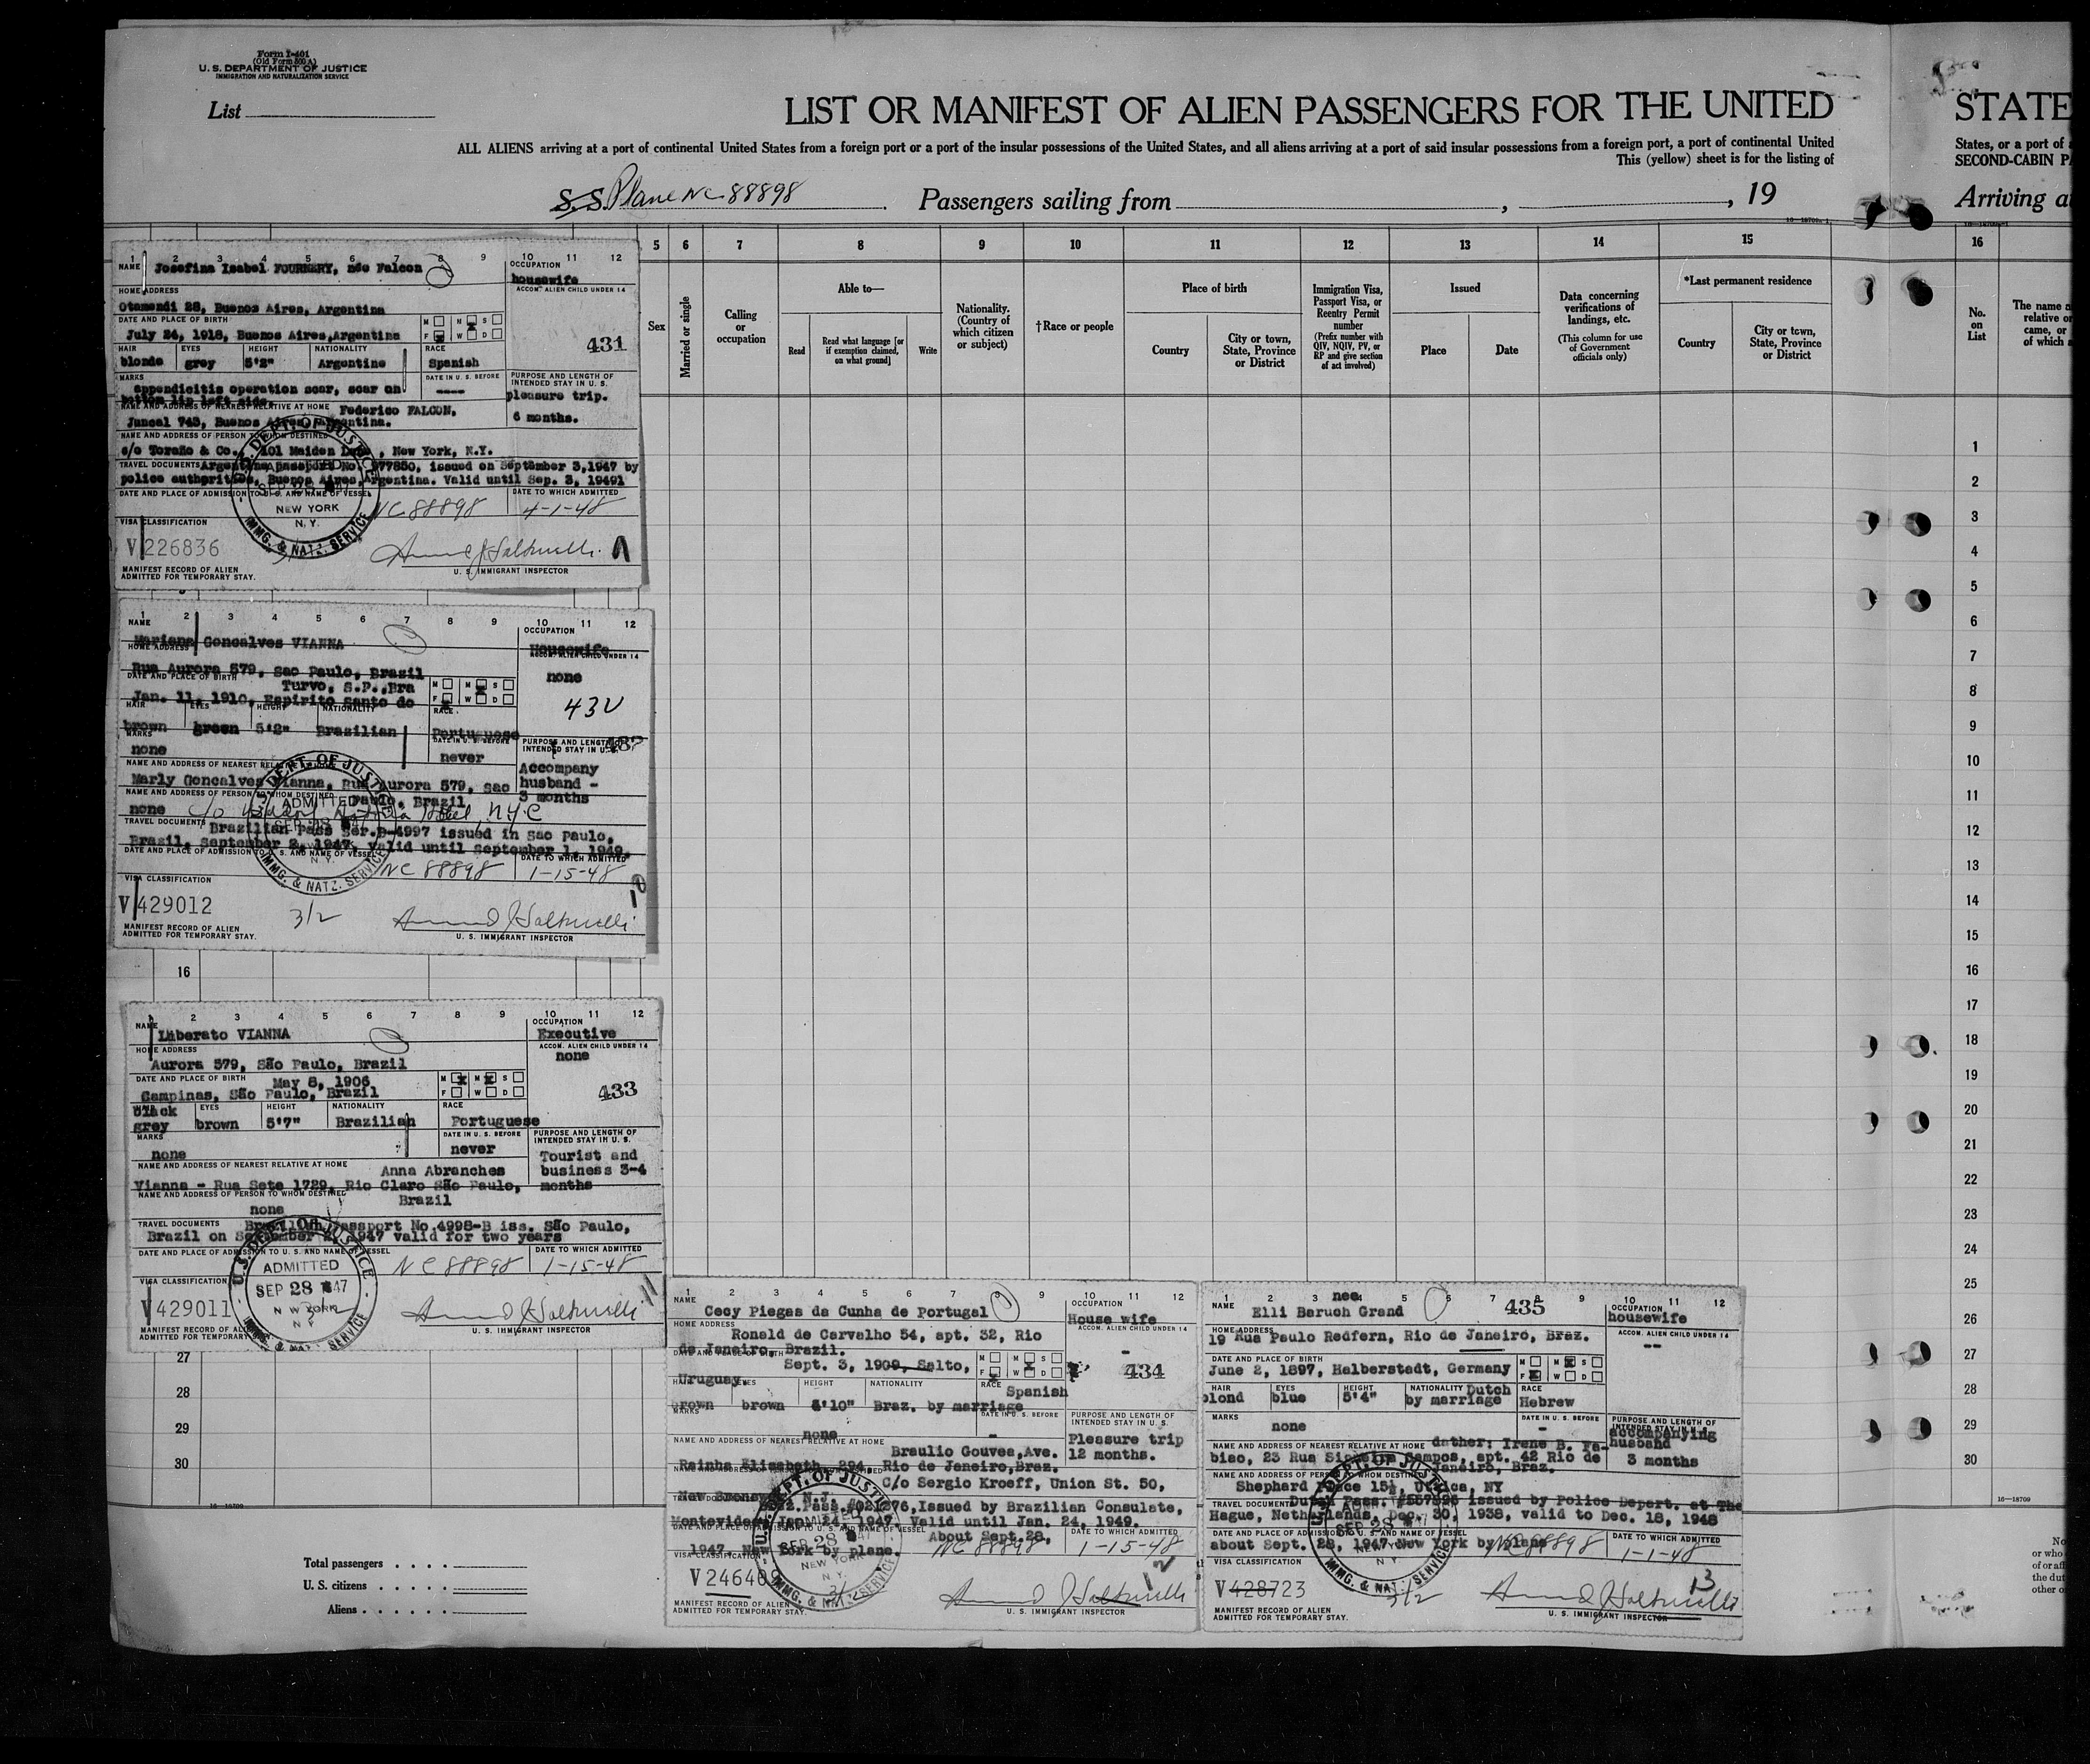 Form I-401
(Old Form 500 A)
U. S. DEPARTMENT OF JUSTICE
IMMIGRATION AND NATURALIZATION SERVICE
List
LIST OR MANIFEST OF ALIEN PASSENGERS FOR THE UNITED
ALL ALIENS arriving at a port of continental United States from a foreign port or a port of the insular possessions of the United States, and all aliens arriving at a port of said insular possessions from a foreign port, a port of continental United
This (yellow) sheet is for the listing of
S. S. Plane NC 88898 Passengers sailing from , , 19
STATE
States, or a port of
SECOND-CABIN P
Arriving a
5 6 7 8 9 10 11 12 13 14 15 16
Sex
Married or single
Calling or occupation
Able to—
Read
Read what language [or if exemption claimed, on what ground]
Write
Nationality. (Country of which citizen or subject)
†Race or people
Place of birth
Country
City or town, State, Province or District
Immigration Visa, Passport Visa, or Reentry Permit number
(Prefix number with QIV, NQIV, PV, or RP and give section of act involved)
Issued
Place
Date
Data concerning verifications of landings, etc.
(This column for use of Government officials only)
*Last permanent residence
Country
City or town, State, Province or District
No. on List
The name a
relative or
came, or
of which a
1 2 3 4 5 6 7 8 9 10 11 12
NAME Josefina Isabel FOURNERY, née Falcon
OCCUPATION
housewife
HOME ADDRESS
ACCOM. ALIEN CHILD UNDER 14
Otamendi 28, Buenos Aires, Argentina
DATE AND PLACE OF BIRTH
July 24, 1918, Buenos Aires, Argentina
M M S
F W D
431
HAIR EYES HEIGHT NATIONALITY RACE
blonde grey 5'2" Argentine Spanish
MARKS
DATE IN U. S. BEFORE
PURPOSE AND LENGTH OF INTENDED STAY IN U. S.
appendicitis operation scar, scar on ----
pleasure trip.
bottom lip left side.
NAME AND ADDRESS OF NEAREST RELATIVE AT HOME Federico FALCON,
6 months.
Juncal 743, Buenos Aires, Argentina.
NAME AND ADDRESS OF PERSON TO WHOM DESTINED
c/o Toraño & Co., 101 Maiden Lane, New York, N.Y.
TRAVEL DOCUMENTS Argentine passport No. 977850, issued on September 3,1947 by
police authorities, Buenos Aires, Argentina. Valid until Sep. 3, 1949
DATE AND PLACE OF ADMISSION TO U. S. AND NAME OF VESSEL
DATE TO WHICH ADMITTED
NC 88898 4-1-48
U. S. DEPT. OF JUSTICE
ADMITTED
SEP 28 1947
NEW YORK
N. Y.
IMMG. & NATZ. SERVICE
VISA CLASSIFICATION
V 226836
MANIFEST RECORD OF ALIEN
ADMITTED FOR TEMPORARY STAY.
U. S. IMMIGRANT INSPECTOR
1 2 3 4 5 6 7 8 9 10 11 12
NAME
OCCUPATION
Mariana Goncalves VIANNA
Housewife
HOME ADDRESS
ACCOM. ALIEN CHILD UNDER 14
Rua Aurora 579, Sao Paulo, Brazil
none
DATE AND PLACE OF BIRTH
Turvo, S.P., Bra
Jan. 11, 1910, Espirito Santo do
M M S
F W D
432
HAIR EYES HEIGHT NATIONALITY RACE
brown green 5'2" Brazilian Portuguese
MARKS
DATE IN U. S. BEFORE
PURPOSE AND LENGTH OF INTENDED STAY IN U. S.
none never
NAME AND ADDRESS OF NEAREST RELATIVE
Accompany
Marly Goncalves Vianna, Rua Aurora 579, Sao
husband -
NAME AND ADDRESS OF PERSON TO WHOM DESTINED Paulo, Brazil
3 months
none c/o Hotel, NYC
TRAVEL DOCUMENTS Brazilian Pass Ser.B-4997 issued in Sao Paulo,
Brazil, September 2, 1947, valid until September 1, 1949.
DATE AND PLACE OF ADMISSION TO U. S. AND NAME OF VESSEL
DATE TO WHICH ADMITTED
NC 88898 1-15-48
U. S. DEPT. OF JUSTICE
ADMITTED
SEP 28 1947
N. Y.
IMMG. & NATZ. SERVICE
VISA CLASSIFICATION
V 429012
3/2
10
MANIFEST RECORD OF ALIEN
ADMITTED FOR TEMPORARY STAY.
U. S. IMMIGRANT INSPECTOR
16
1 2 3 4 5 6 7 8 9 10 11 12
NAME
Liberato VIANNA
OCCUPATION
Executive
HOME ADDRESS
ACCOM. ALIEN CHILD UNDER 14
Aurora 579, São Paulo, Brazil
none
DATE AND PLACE OF BIRTH May 8, 1906
Campinas, São Paulo, Brazil
M M S
F W D
433
black EYES HEIGHT NATIONALITY RACE
grey brown 5'7" Brazilian Portuguese
MARKS
DATE IN U. S. BEFORE
PURPOSE AND LENGTH OF INTENDED STAY IN U. S.
none never
Tourist and
NAME AND ADDRESS OF NEAREST RELATIVE AT HOME Anna Abranches
business 3-4
Vianna - Rua Sete 1729, Rio Claro São Paulo,
months
NAME AND ADDRESS OF PERSON TO WHOM DESTINED Brazil
none
TRAVEL DOCUMENTS Brazilian Passport No.4998-B iss. São Paulo,
Brazil on September 2, 1947 valid for two years
DATE AND PLACE OF ADMISSION TO U. S. AND NAME OF VESSEL
DATE TO WHICH ADMITTED
NC 88898 1-15-48
U. S. DEPT. OF JUSTICE
ADMITTED
SEP 28 1947
NEW YORK
N. Y.
IMMG. & NATZ. SERVICE
VISA CLASSIFICATION
V 429011
11
MANIFEST RECORD OF ALIEN
ADMITTED FOR TEMPORARY STAY.
U. S. IMMIGRANT INSPECTOR
27
28
29
30
16-18709
1 2 3 4 5 6 7 8 9 10 11 12
NAME
Cecy Piegas da Cunha de Portugal
OCCUPATION
House wife
HOME ADDRESS
ACCOM. ALIEN CHILD UNDER 14
Ronald de Carvalho 54, apt. 32, Rio
-
de Janeiro, Brazil.
DATE AND PLACE OF BIRTH
Sept. 3, 1909, Salto,
M M S
F W D
434
Uruguay.
HAIR EYES HEIGHT NATIONALITY RACE
Spanish
brown brown 5'10" Braz. by marriage
MARKS
DATE IN U. S. BEFORE
PURPOSE AND LENGTH OF INTENDED STAY IN U. S.
none -
Pleasure trip
NAME AND ADDRESS OF NEAREST RELATIVE AT HOME
12 months.
Braulio Gouvea, Ave.
Rainha Elizabeth, 294, Rio de Janeiro, Braz.
C/o Sergio Kroeff, Union St. 50,
New Brunswick, N.J.
Braz. Pass. #021276, Issued by Brazilian Consulate,
Montevideo, Jan. 24, 1947. Valid until Jan. 24, 1949.
DATE AND PLACE OF ADMISSION TO U. S. AND NAME OF VESSEL About Sept. 28,
DATE TO WHICH ADMITTED
1947. New York by plane. NC 88898 1-15-48
U. S. DEPT. OF JUSTICE
ADMITTED
SEP 28 1947
NEW YORK
N. Y.
IMMG. & NATZ. SERVICE
VISA CLASSIFICATION
V 246409
12
MANIFEST RECORD OF ALIEN
ADMITTED FOR TEMPORARY STAY.
U. S. IMMIGRANT INSPECTOR
1 2 3 4 5 6 7 8 9 10 11 12
NAME
nee
Elli Baruch Grand
435
OCCUPATION
housewife
HOME ADDRESS
ACCOM. ALIEN CHILD UNDER 14
19 Rua Paulo Redfern, Rio de Janeiro, Braz.
--
DATE AND PLACE OF BIRTH
June 2, 1897, Halberstadt, Germany
M M S
F W D
HAIR EYES HEIGHT NATIONALITY Dutch RACE
blond blue 5'4" by marriage Hebrew
MARKS
DATE IN U. S. BEFORE
PURPOSE AND LENGTH OF INTENDED STAY IN U. S.
none -
accompanying
NAME AND ADDRESS OF NEAREST RELATIVE AT HOME dather: Irene B. Fa-
husband
biso, 23 Rua Siqueira Campos, apt. 42 Rio de
3 months
NAME AND ADDRESS OF PERSON TO WHOM DESTINED Janeiro, Braz.
Shephard Place 15½, Utica, NY
TRAVEL DOCUMENTS Dutch Pass. #567896 issued by Police Depart. at The
Hague, Netherlands, Dec. 30, 1938, valid to Dec. 18, 1948
DATE AND PLACE OF ADMISSION TO U. S. AND NAME OF VESSEL
DATE TO WHICH ADMITTED
about Sept. 28, 1947 New York by plane NC 88898 1-1-48
U. S. DEPT. OF JUSTICE
SEP 28 1947
NEW YORK
N. Y.
IMMG. & NATZ. SERVICE
VISA CLASSIFICATION
V 428723
3/2
13
MANIFEST RECORD OF ALIEN
ADMITTED FOR TEMPORARY STAY.
U. S. IMMIGRANT INSPECTOR
Total passengers . . . .
U. S. citizens . . . . . .
Aliens . . . . . . .
1
2
3
4
5
6
7
8
9
10
11
12
13
14
15
16
17
18
19
20
21
22
23
24
25
26
27
28
29
30
16-18709
No
or who
of or aff
the dut
other o